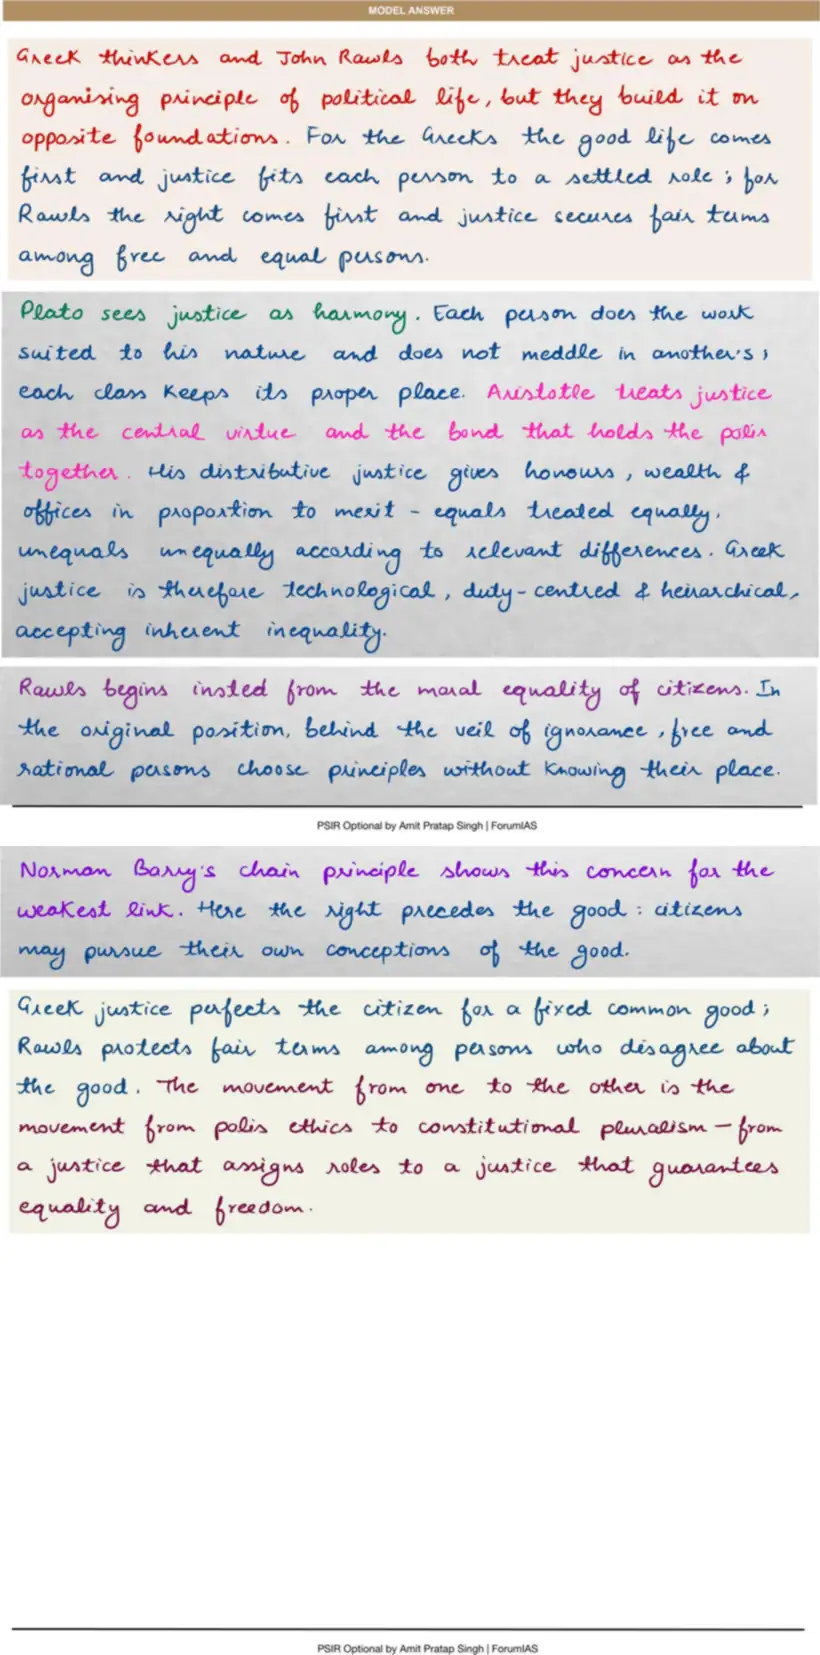 MODEL ANSWER
Greek thinkers and John Rawls both treat justice as the
organising principle of political life, but they build it on
opposite foundations. For the Greeks the good life comes
first and justice fits each person to a settled role; for
Rawls the right comes first and justice secures fair terms
among free and equal persons.
Plato sees justice as harmony. Each person does the work
suited to his nature and does not meddle in another's;
each class keeps its proper place. Aristotle treats justice
as the central virtue and the bond that holds the polis
together. His distributive justice gives honours, wealth &
offices in proportion to merit - equals treated equally,
unequals unequally according to relevant differences. Greek
justice is therefore technological, duty-centred & heirarchical,
accepting inherent inequality.
Rawls begins insted from the moral equality of citizens. In
the original position, behind the veil of ignorance, free and
rational persons choose principles without knowing their place.
PSIR Optional by Amit Pratap Singh | ForumIAS
Norman Barry's chain principle shows this concern for the
weakest link. Here the right precedes the good: citizens
may pursue their own conceptions of the good.
Greek justice perfects the citizen for a fixed common good;
Rawls protects fair terms among persons who disagree about
the good. The movement from one to the other is the
movement from polis ethics to constitutional pluralism - from
a justice that assigns roles to a justice that guarantees
equality and freedom.
PSIR Optional by Amit Pratap Singh | ForumIAS